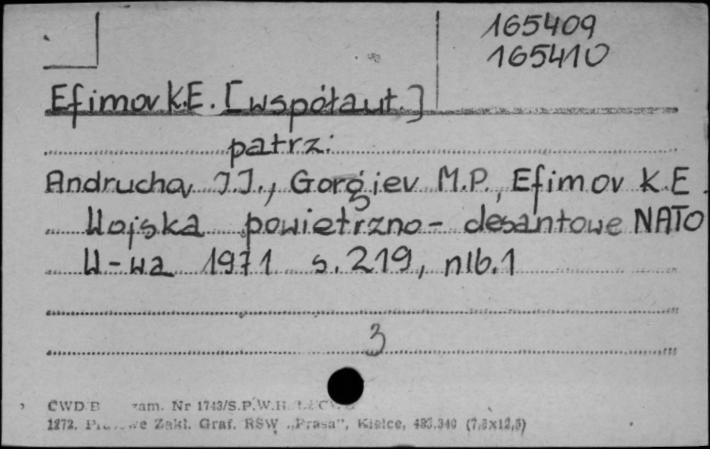 165409
165410
Efimov K.E. [współaut.]
patrz:
Andruchov J.J., Gorgiev M.P., Efimov K.E.
Wojska powietrzno-desantowe NATO
W-wa 1971 s. 219, nlb. 1
3
CWD zam. Nr 1743/S.P.W.H.
1272. Zakł. Graf. RSW „Prasa", Kielce,